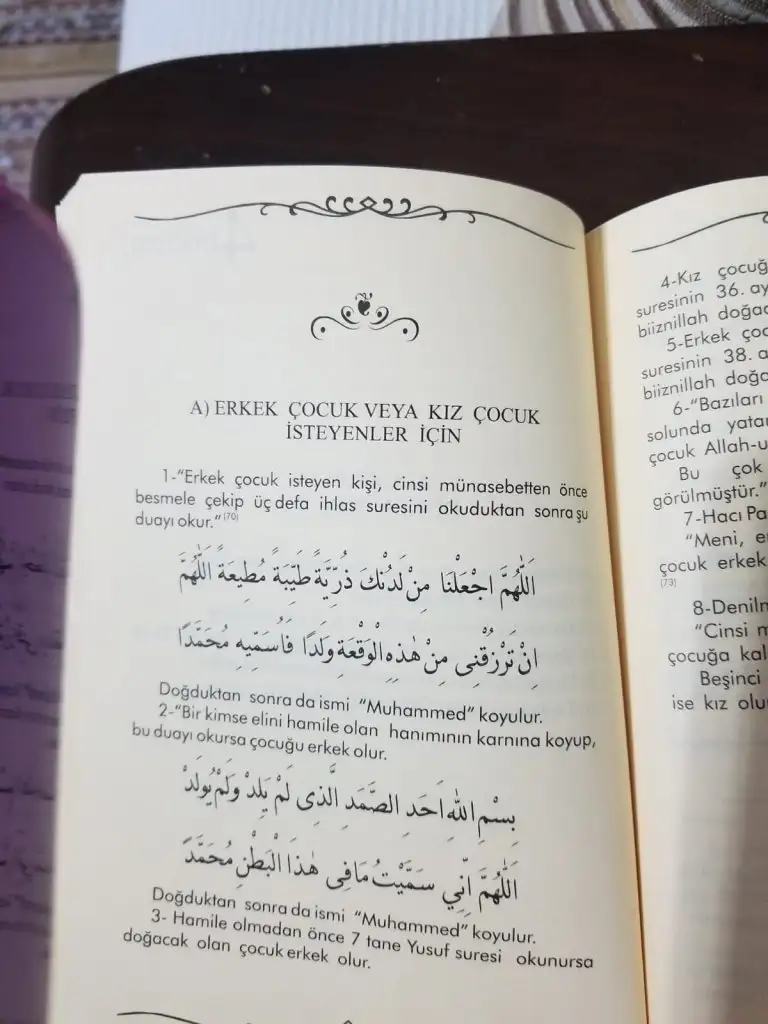 A) ERKEK ÇOCUK VEYA KIZ ÇOCUK
İSTEYENLER İÇİN
1-“Erkek çocuk isteyen kişi, cinsi münasebetten önce
besmele çekip üç defa ihlas suresini okuduktan sonra şu
duayı okur.” (70)
اَللّٰهُمَّ اجْعَلْنَا مِنْ لَدُنْكَ ذُرِّيَّةً طَيِّبَةً مُطِيعَةً اَللّٰهُمَّ
اِنْ تَرْزُقْنِى مِنْ هٰذِهِ الْوَقْعَةِ وَلَدًا فَاُسَمِّيهِ مُحَمَّدًا
Doğduktan sonra da ismi “Muhammed” koyulur.
2-“Bir kimse elini hamile olan hanımının karnına koyup,
bu duayı okursa çocuğu erkek olur.
بِسْمِ اللّٰهِ اَحَد الصَّمَد الَّذِى لَمْ يَلِدْ وَلَمْ يُولَدْ
اَللّٰهُمَّ اِنِّي سَمَّيْتُ مَافِى هٰذَا الْبَطْنِ مُحَمَّدً
Doğduktan sonra da ismi “Muhammed” koyulur.
3- Hamile olmadan önce 7 tane Yusuf suresi okunursa
doğacak olan çocuk erkek olur.
4-Kız
suresinin 36.
biiznillah
5-Erkek
suresinin 38.
biiznillah
6-“Bazıları
solunda
çocuk Allah-u
Bu çok
görülmüştür.”
7-Hacı
“Meni,
çocuk erkek
(73)
8-
“Cinsi
çocuğa
Beşinci
ise kız